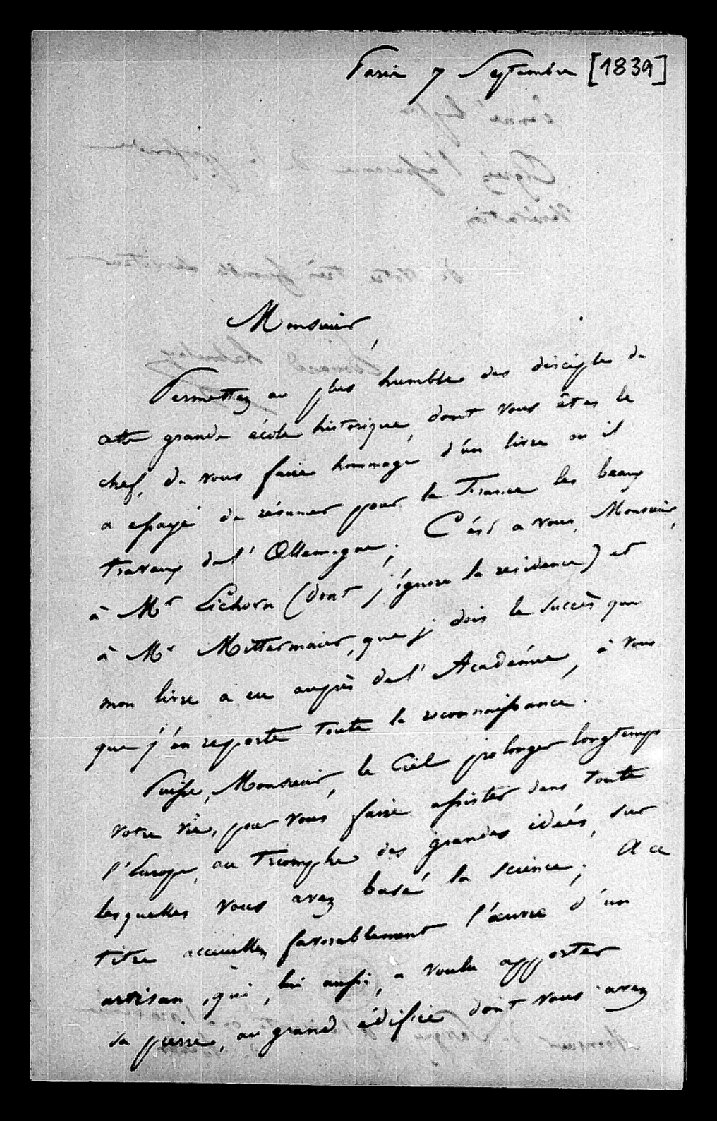 Paris 7 Septembre [1839]
Monsieur,
Permettez au plus humble des disciples de
cette grande école historique, dont vous êtes le
chef, de vous faire hommage d'un livre ou il
a essayé de résumer pour la France les beaux
travaux de l'Allemagne; C'est a vous, Monsieur,
à Mr Eichorn (dont j'ignore la residence) et
à Mr Mittermaier, que je dois le succès que
mon livre a eu auprès de l'Académie, à vous
que j'en reporte toute la reconnaissance.
Puisse, Monsieur, le Ciel prolonger longtemps
votre vie, pour vous faire assister dans toute
l'Europe, au triomphe des grandes idées, sur
lesquelles vous avez basé la science; A ce
titre accueillez favorablement l'œuvre d'un
artisan, qui, lui aussi, a voulu apporter
sa pierre, au grand édifice dont vous avez